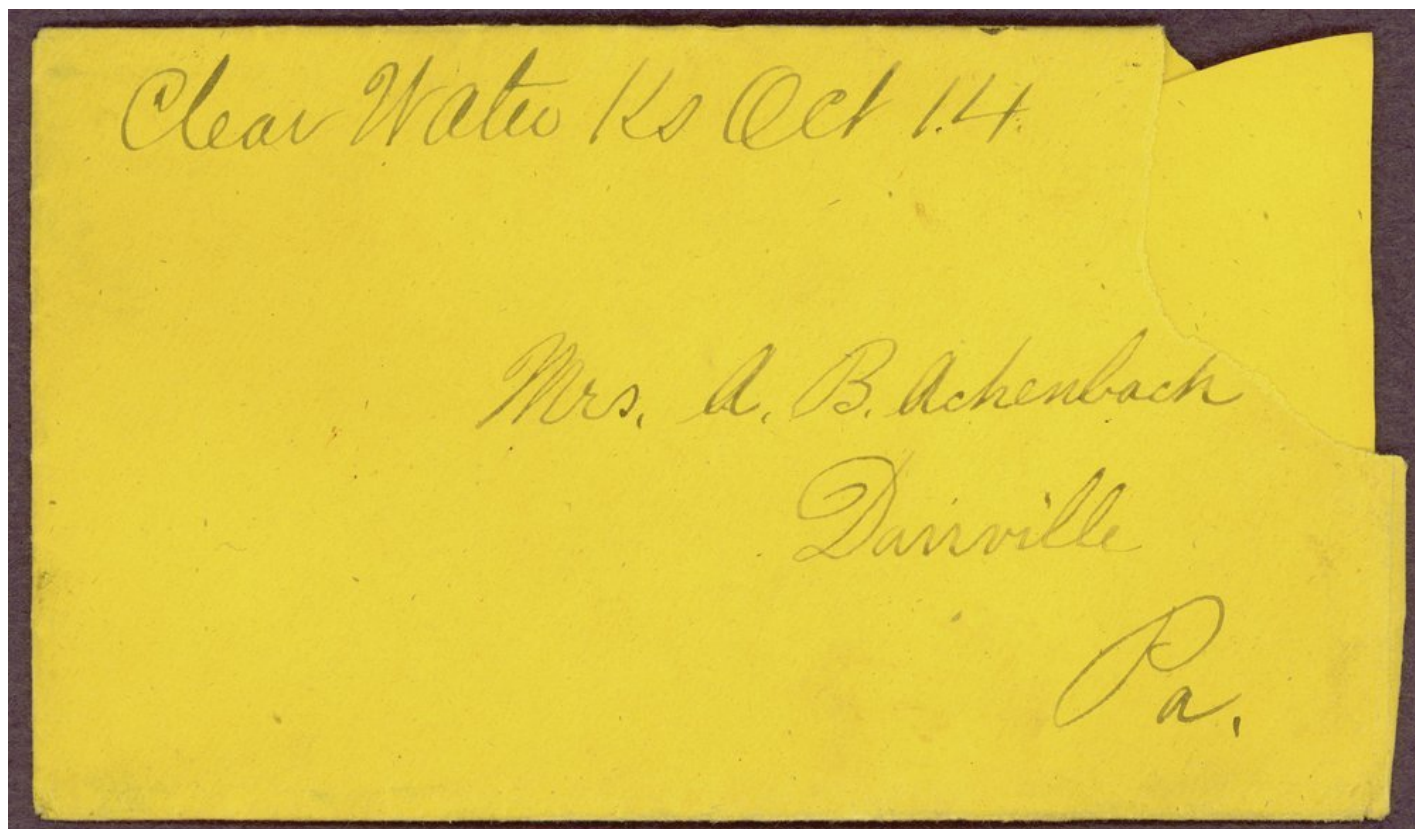 Clear Water Ks Oct 14.
Mrs. A. B. Achenbach
Danville
Pa.